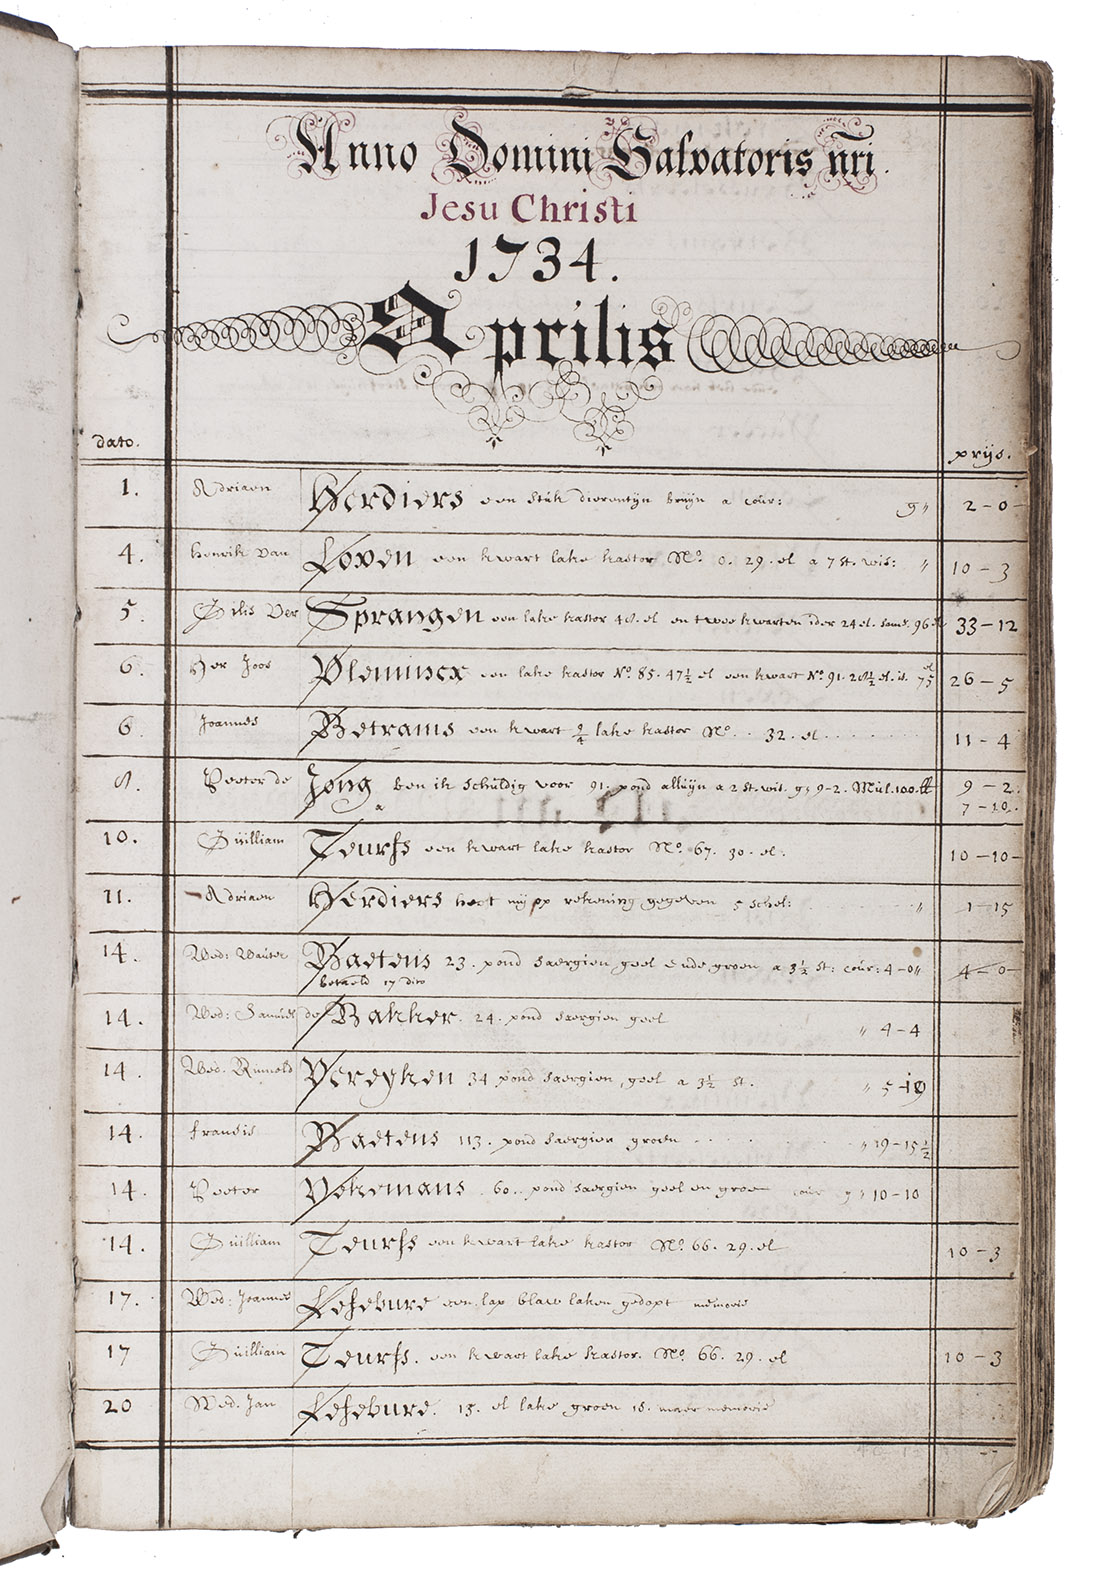 Anno Domini Salvatoris nr̄i.
Jesu Christi
1734.
Aprilis
dato. prijs.
1. Adriaen Herdiers een stuk dierentijn bruijn a cour: g " 2-0-
4. Henrik van Loven een kwart lake kastor No. 0. 29. el a 7 st. wis: " 10-3
5. Gilis Ver Sprangen een lake kastor 48. el en twee kwarten ider 24 el. same. 96 el 33-12
6. Her Joos Vleminckx een lake kastor No. 85. 47½ el een kwart No. 91. 28½ el. is. 75 el 26-5
6. Joannes Betrams een kwart 2/4 lake kastor No. . 32. el 11-4
8. Peeter de Jong ben ik schuldig voor 91. pond alluijn a 2 st. wis. gs 9-2. Mul. 100. ℔ 9-2.
7-10.
10. Guilliam Teurfs een kwart lake kastor No. 67. 30. el. 10-10-
11. Adriaen Herdiers heet mij px rekening gegeven 5 schel: " 1-15
14. Wed: Wauter Baetens 23. pond saergien geel ende groen a 3½ st: cour: 4-0 " 4-0-
betaeld 17 dito
14. Wed: Samuel de Bakker. 24. pond saergien geel " 4-4
14. Wed. Rumold Vereyken 34 pond saergien, geel a 3½ st. " 5-19
14. Fransis Baetens 113. pond saergien groen " 19-15½
14. Peeter Vekemans. 60. pond saergien geel en groen cour g " 10-10
14. Guilliam Teurfs een kwart lake kastor No. 66. 29. el 10-3
17. Wed: Joannes Lefebure een, lap blaw laken gedopt memorie
17 Guilliam Teurfs. een kwart lake kastor. No. 66. 29. el 10-3
20 Wed. Jan Lefebure. 15. el lake groen is. maer memorie